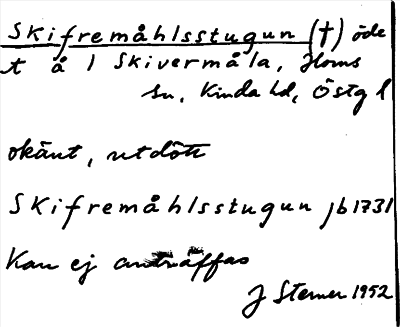 Skifremåhlsstugun (†) öde
t å 1 Skivermåla, Horns
sn, Kinda hd, Östg l
okänt, utdött
Skifremåhlsstugun jb 1731
Kan ej anträffas
J Sterner 1952